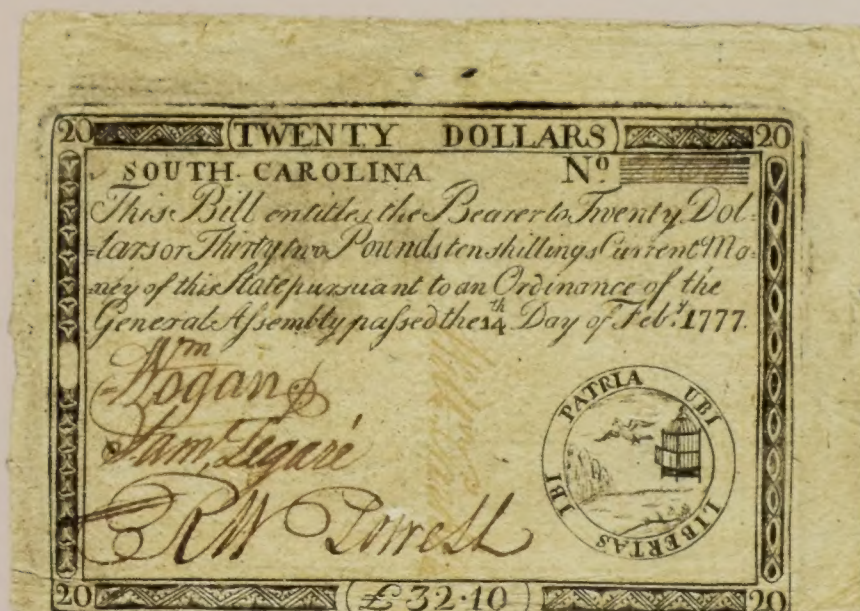 20 TWENTY DOLLARS 20
SOUTH CAROLINA Nº
This Bill entitles the Bearer to Twenty Dol-
-lars or Thirty two Pounds ten shillings Current Mo-
-ney of this State pursuant to an Ordinance of the
General Assembly passed the 14th Day of Feby. 1777.
Wm
Logan
Saml. Legaré
RW Powell
UBI LIBERTAS IBI PATRIA
20 £32.10 20